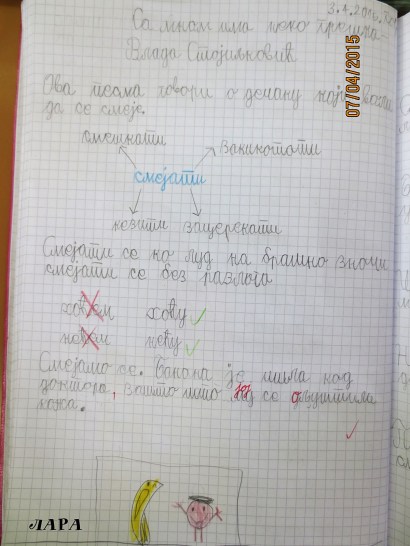 3.4.2015.
Са мном има неко
Влада Стојиљковић
07/04/2015
Ова песма говори о дечаку који воли
да се смеје.
осмехнути
закикотати
смејати
кезити зацерекати
Смејати се ко луд на брашно значи
смејати се без разлога
хоћем хоћу ✓
нећем нећу ✓
Смејамо се. Банана је ишла код
доктора, зашто што јој се љуштила
кожа.
ЛАРА